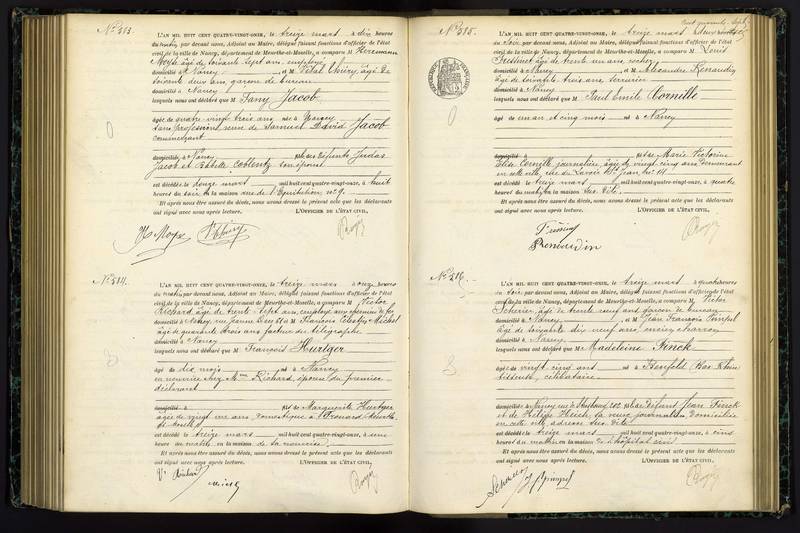 N° 313.
L'AN MIL HUIT CENT QUATRE-VINGT-ONZE, le treize mars à dix heures
du matin, par devant nous, Adjoint au Maire, délégué faisant fonctions d'officier de l'état
civil de la ville de Nancy, département de Meurthe-et-Moselle, a comparu M Hermann
Moyse âgé de soixante sept ans, employé
domicilié à Nancy, et M Vital Thiéry, âgé de
soixante deux ans, garçon de bureau
domicilié à Nancy
lesquels nous ont déclaré que M Fany Jacob
âgée de quatre vingt trois ans née à Nancy
sans profession, veuve de Samuel David Jacob
commerçant
domicilié à Nancy fille des défunts Judas
Jacob et Coblentz son épouse
est décédée le douze mars mil huit cent quatre-vingt-onze, à huit
heures du soir en la maison rue de l'Equitation n° 9.
Et après nous être assuré du décès, nous avons dressé le présent acte que les déclarants
ont signé avec nous après lecture. L'OFFICIER DE L'ÉTAT CIVIL,
H. Moyse V. Thiéry
N° 314.
L'AN MIL HUIT CENT QUATRE-VINGT-ONZE, le treize mars à onze heures
du matin, par devant nous, Adjoint au Maire, délégué faisant fonctions d'officier de l'état
civil de la ville de Nancy, département de Meurthe-et-Moselle, a comparu M Victor
Richard, âgé de trente sept ans, employé aux chemins de fer
domicilié à Nancy, et M François Célestin Michel
âgé de quarante trois ans facteur du télégraphe
domicilié à Nancy
lesquels nous ont déclaré que M François Hurtger
âgé de dix mois né à Nancy
en nourrice chez Mme Richard, épouse du premier
déclarant
domicilié à fils de Marguerite Hurtger
âgée de vingt ans domestique à
est décédé le treize mars mil huit cent quatre-vingt-onze, à une
heure du matin en la maison de la nourrice.
Et après nous être assuré du décès, nous avons dressé le présent acte que les déclarants
ont signé avec nous après lecture. L'OFFICIER DE L'ÉTAT CIVIL,
N° 315.
L'AN MIL HUIT CENT QUATRE-VINGT-ONZE, le treize mars à heures
du soir, par devant nous, Adjoint au Maire, délégué faisant fonctions d'officier de l'état
civil de la ville de Nancy, département de Meurthe-et-Moselle, a comparu M Louis
âgé de trente un ans, cocher
domicilié à Nancy et M Alexandre Renaudin
âgé de soixante trois ans serrurier
domicilié à Nancy
lesquels nous ont déclaré que M Paul Emile Cornille
âgé de un an et cinq mois né à Nancy
domicilié à fils de Marie Victorine
Elise Cornille journalière, âgée de vingt cinq ans demeurant
en cette ville, rue du St Jean, n° 14
est décédé le treize mars mil huit cent quatre-vingt-onze, à quatre
heures du matin en la maison sus dite.
Et après nous être assuré du décès, nous avons dressé le présent acte que les déclarants
ont signé avec nous après lecture. L'OFFICIER DE L'ÉTAT CIVIL,
Renaudin
N° 316.
L'AN MIL HUIT CENT QUATRE-VINGT-ONZE, le treize mars à quatre heures
du soir, par devant nous, Adjoint au Maire, délégué faisant fonctions d'officier de l'état
civil de la ville de Nancy, département de Meurthe-et-Moselle, a comparu M Victor
âgé de trente neuf ans garçon de bureau
domicilié à Nancy, et M Jean François
âgé de soixante dix neuf ans, ancien charron
domicilié à Nancy
lesquels nous ont déclaré que M Madeleine Finck
âgée de vingt cinq ans née à Benfeld Bas Rhin
célibataire
domiciliée à Nancy rue de Strasbourg 202 fille de défunt Jean Finck
et de Heich, sa veuve journalière, domiciliée
en cette ville, adresse sus dite
est décédée le treize mars mil huit cent quatre-vingt-onze, à cinq
heures du matin en la maison de l'hôpital civil
Et après nous être assuré du décès, nous avons dressé le présent acte que les déclarants
ont signé avec nous après lecture. L'OFFICIER DE L'ÉTAT CIVIL,